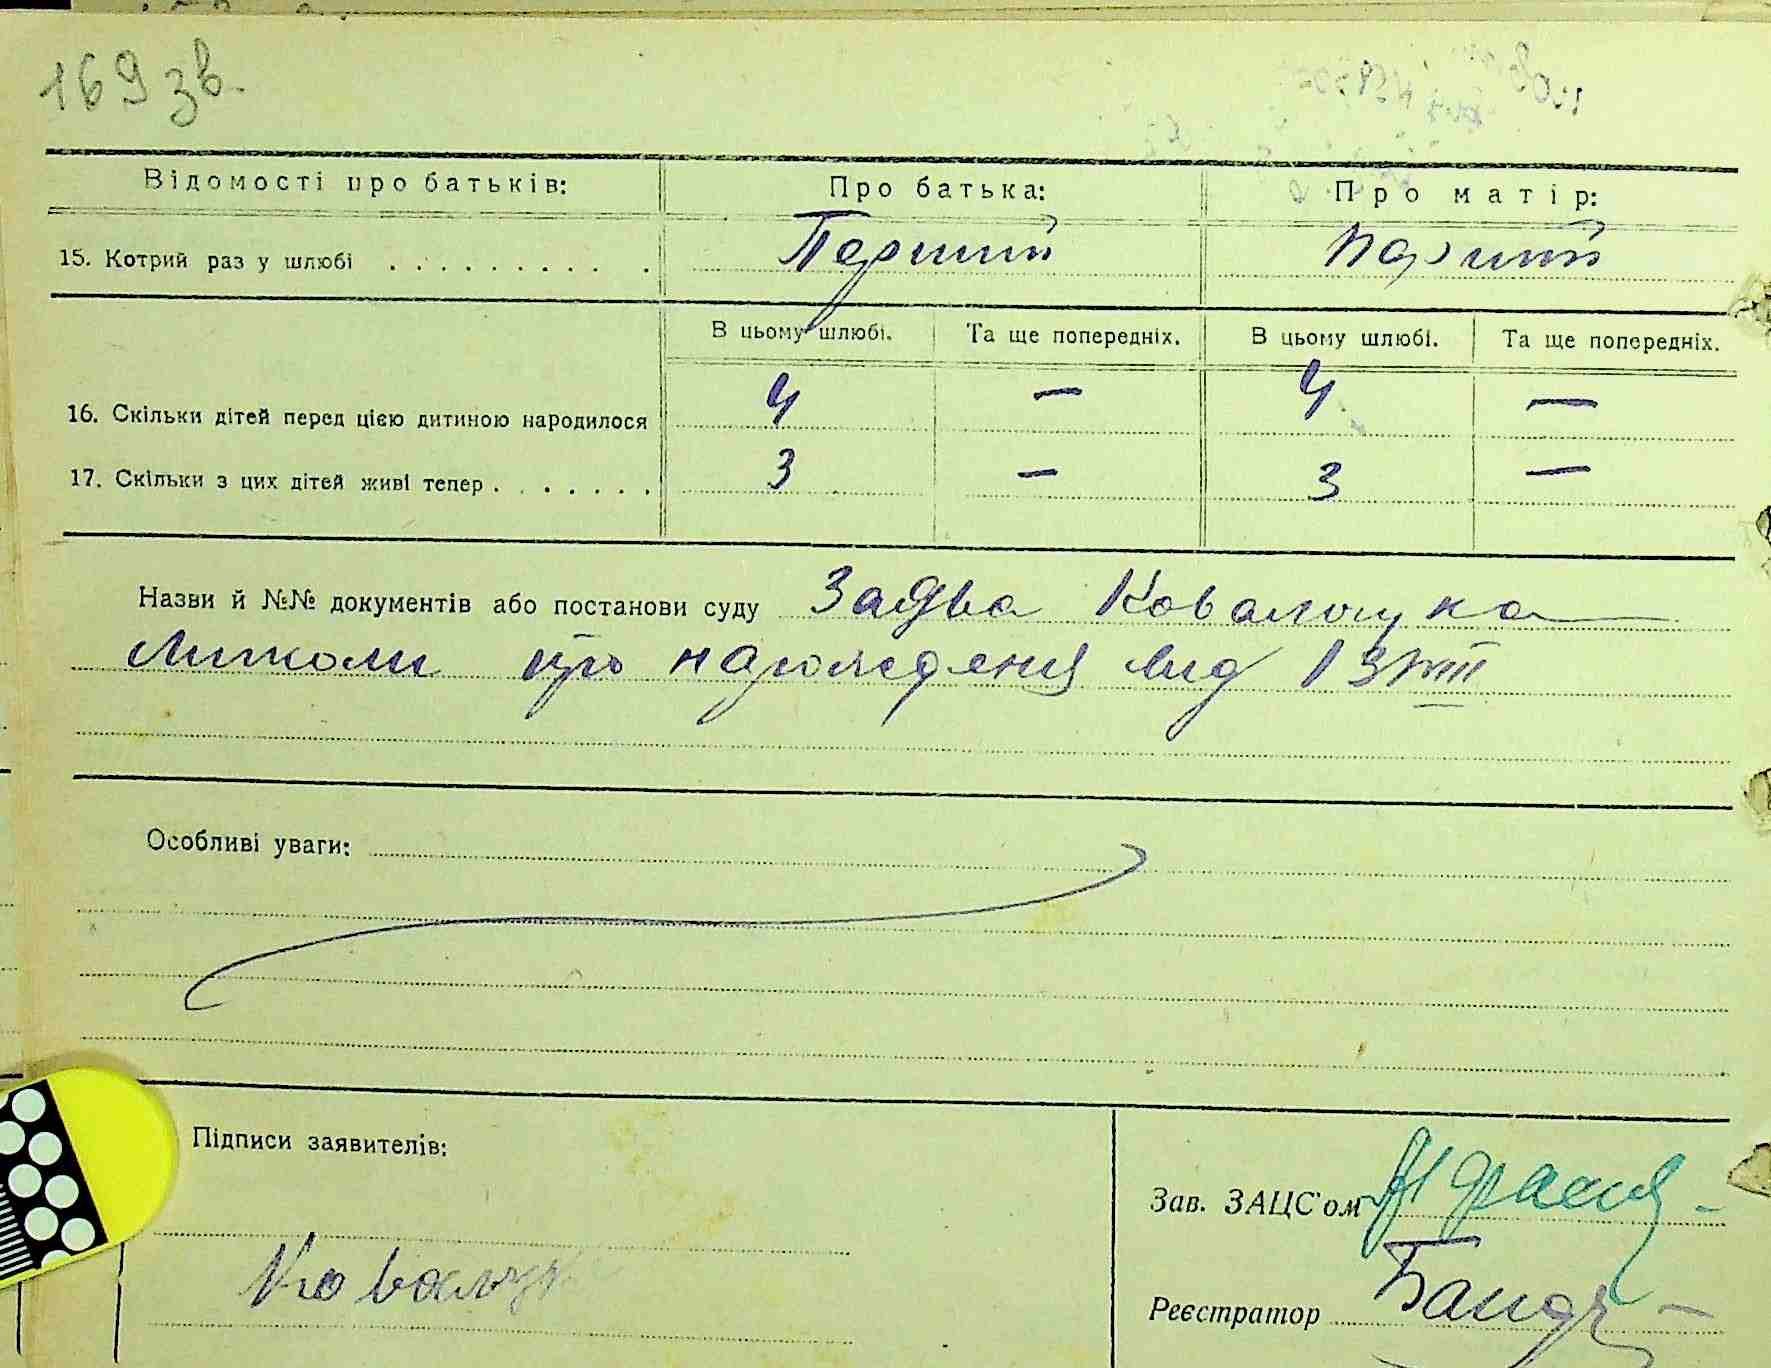 169 зв.
Відомості про батьків: Про батька: Про матір:
15. Котрий раз у шлюбі . . . . . . . . . . Перший Перший
В цьому шлюбі. Та ще попередніх. В цьому шлюбі. Та ще попередніх.
16. Скільки дітей перед цією дитиною народилося 4 — 4 —
17. Скільки з цих дітей живі тепер . . . . . . . 3 — 3 —
Назви й №№ документів або постанови суду Заява Ковальчука
про народження від 13/VIII
Особливі уваги:
Підписи заявителів:
Зав. ЗАЦС'ом
Ковальчук
Реєстратор